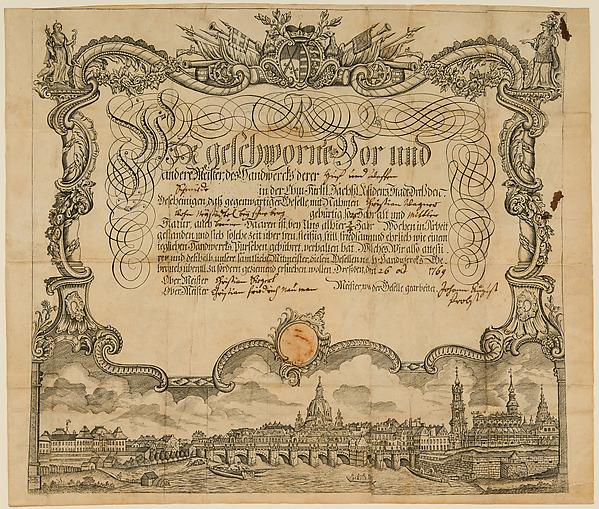 Wir geschworne Vor und
andere Meister des Handwercks derer Huf und Waffen
Schmiede in der Churfürstl. Sächß. Residenz Stadt Dreßden.
Bescheinigen daß gegenwärtiger Geselle mit Nahmen Christian Wagner
gebürtig, so Jahr alt und mittler
Statur, auch Haaren ist, bey Uns allhier Jahr Wochen in Arbeit
gestanden und sich solche Zeit über treu, fleißig, still, friedsam und ehrlich wie einem
jeglichen Handwercks Purschen gebühret, verhalten hat. Welches Wir also attesti
ren und deßhalb unsere sämtliche Mitmeister, diesen Gesellen nach Handwercks Ge
brauch überall zu fördern geziemend ersuchen wollen. Dreßden, den 26 1769
Ober Meister Christian
Ober Meister Christian Friedrich Nauman
Meister, wo der Geselle gearbeitet, Johann